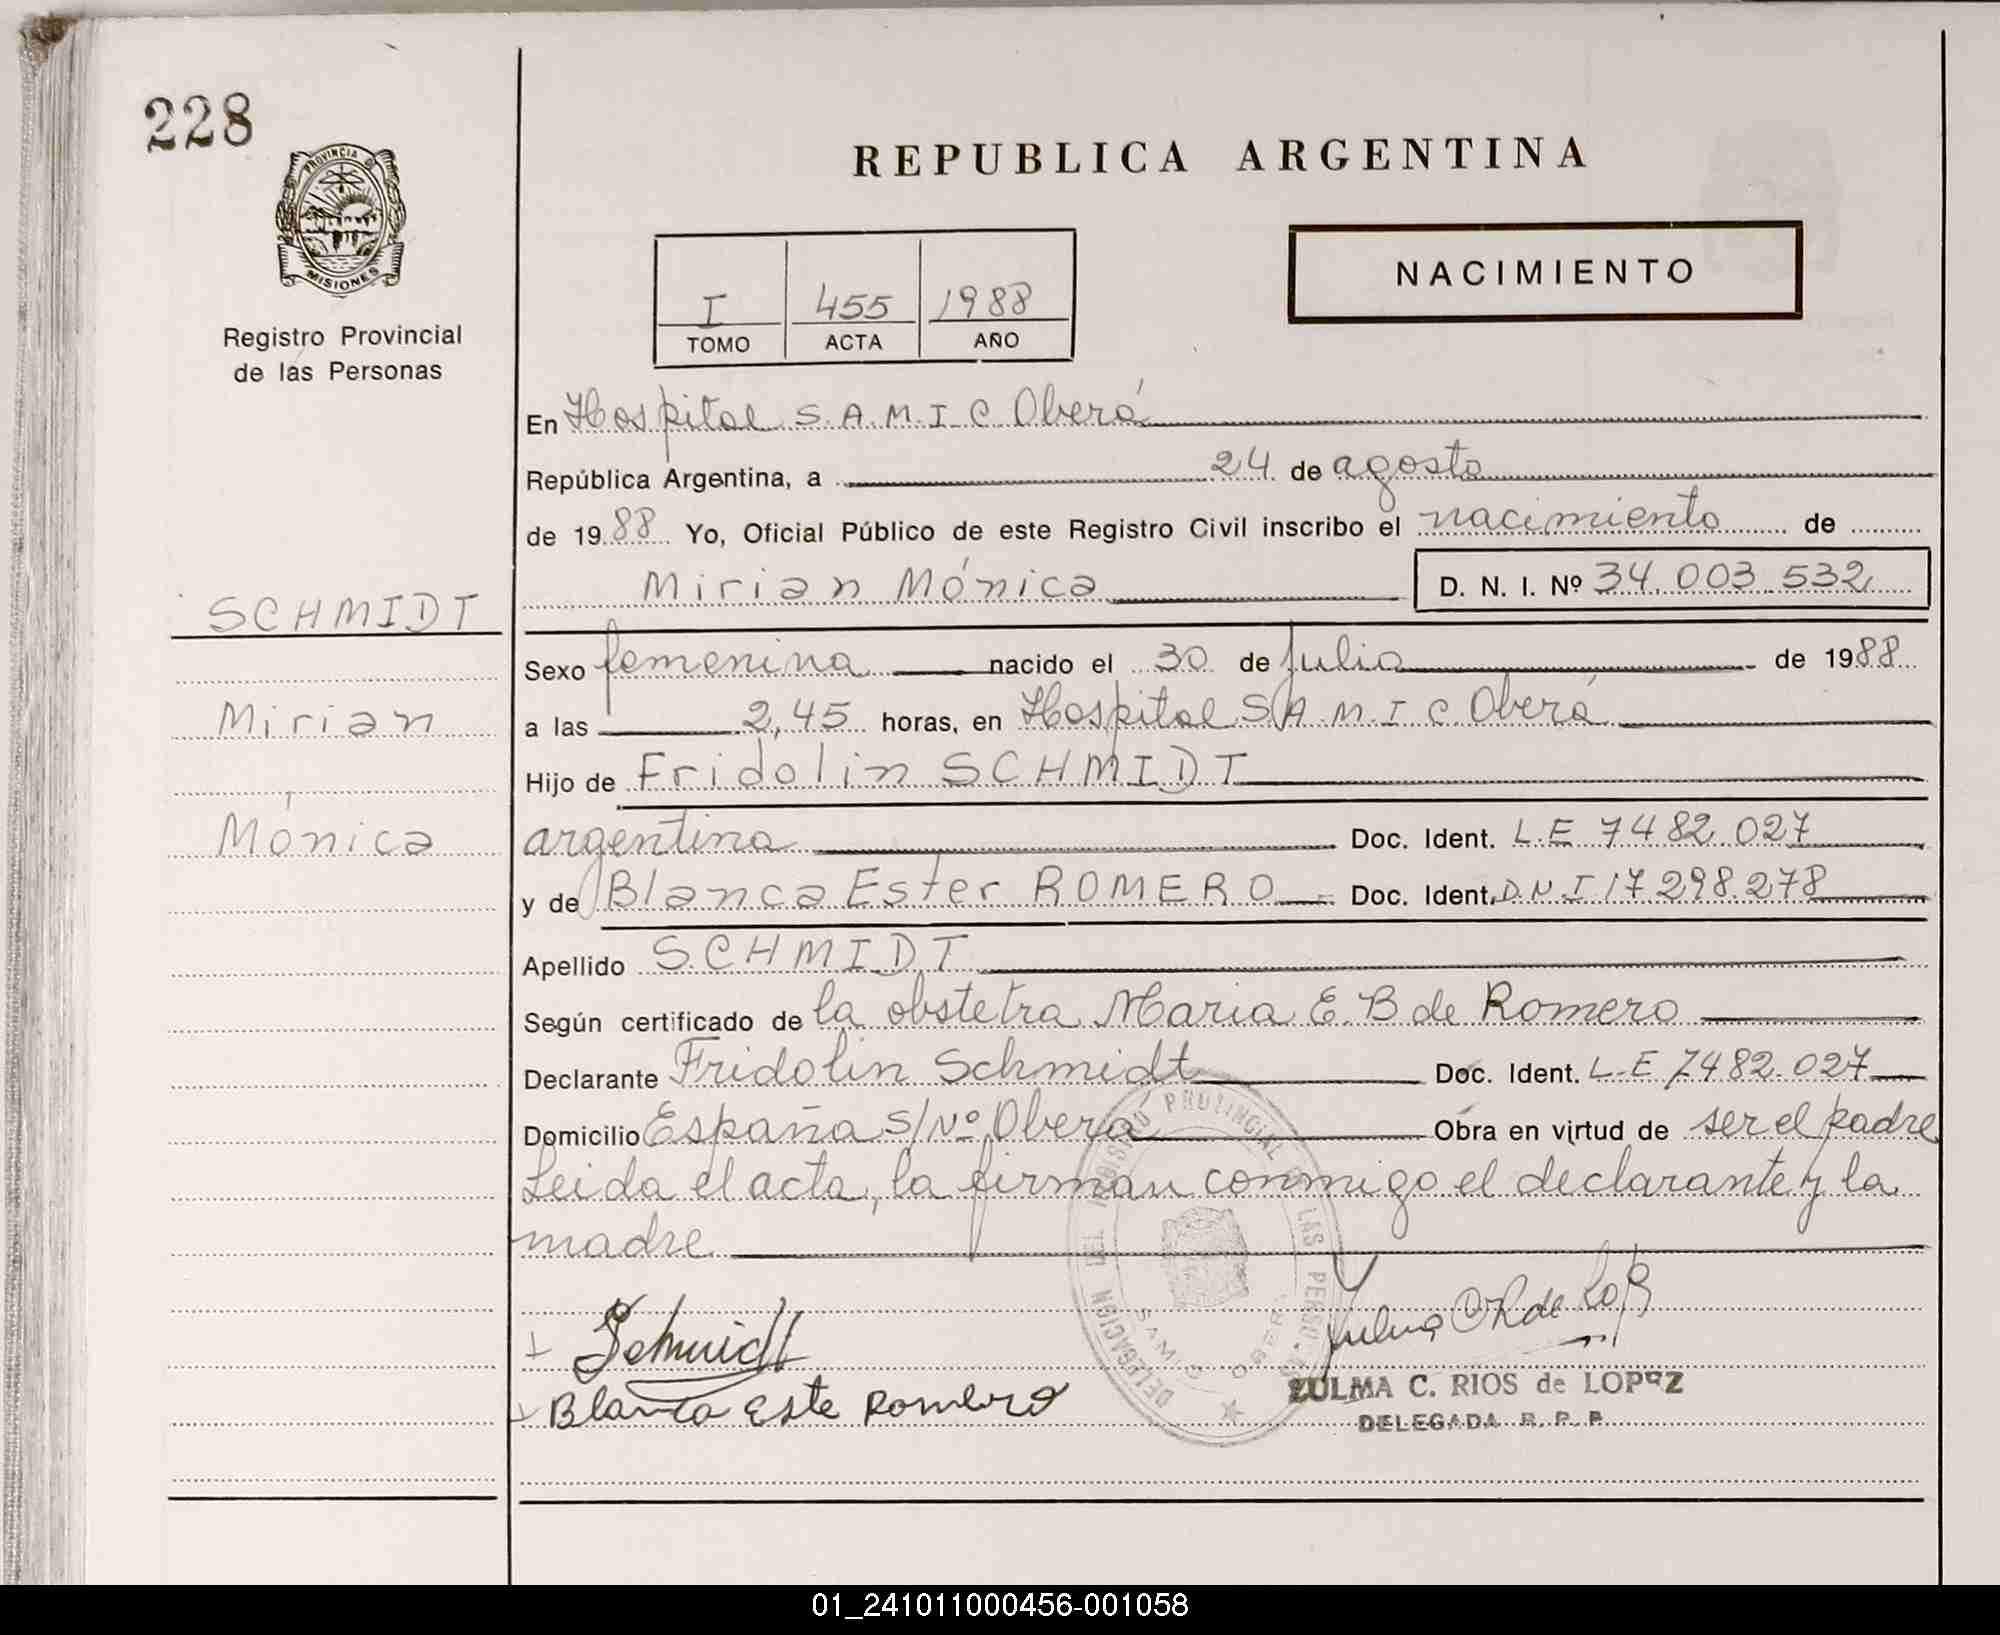 228
PROVINCIA DE
MISIONES
Registro Provincial
de las Personas
REPUBLICA ARGENTINA
I 455 1988
TOMO ACTA AÑO
NACIMIENTO
En Hospital S.A.M.I.C Oberá
República Argentina, a 24 de agosto
de 1988 Yo, Oficial Público de este Registro Civil inscribo el nacimiento de
Mirian Mónica D. N. I. Nº 34.003.532
SCHMIDT
Mirian
Mónica
Sexo femenina nacido el 30 de julio de 1988
a las 2,45 horas, en Hospital S.A.M.I.C Oberá
Hijo de Fridolin SCHMIDT
argentina Doc. Ident. L.E 7482.027
y de Blanca Ester ROMERO Doc. Ident. D.N.I 17.298.278
Apellido SCHMIDT
Según certificado de la obstetra Maria E. B de Romero
Declarante Fridolin Schmidt Doc. Ident. L.E 7482.027
Domicilio España S/Nº Oberá Obra en virtud de ser el padre
Leida el acta, la firman conmigo el declarante y la
madre
Schmidt
Blanca Este Romero
DELEGACION DEL REGISTRO PROVINCIAL DE LAS PERSONAS
ZULMA C. RIOS de LOPEZ
DELEGADA R. P. P.
01_241011000456-001058